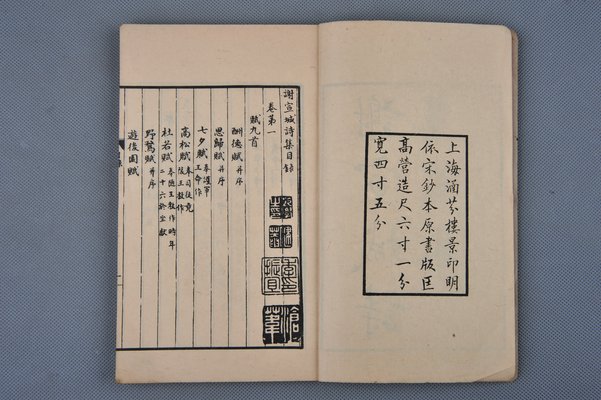 上海涵芬樓景印明
依宋鈔本原書版匡
高營造尺六寸一分
寬四寸五分
謝宣城詩集目錄
卷第一
賦九首
酬德賦 并序
思歸賦 并序
七夕賦 奉護軍王命作
高松賦 奉司徒竟陵王教作
杜若賦 奉隨王教作時年二十六於坐獻
野鶩賦 并序
遊後園賦